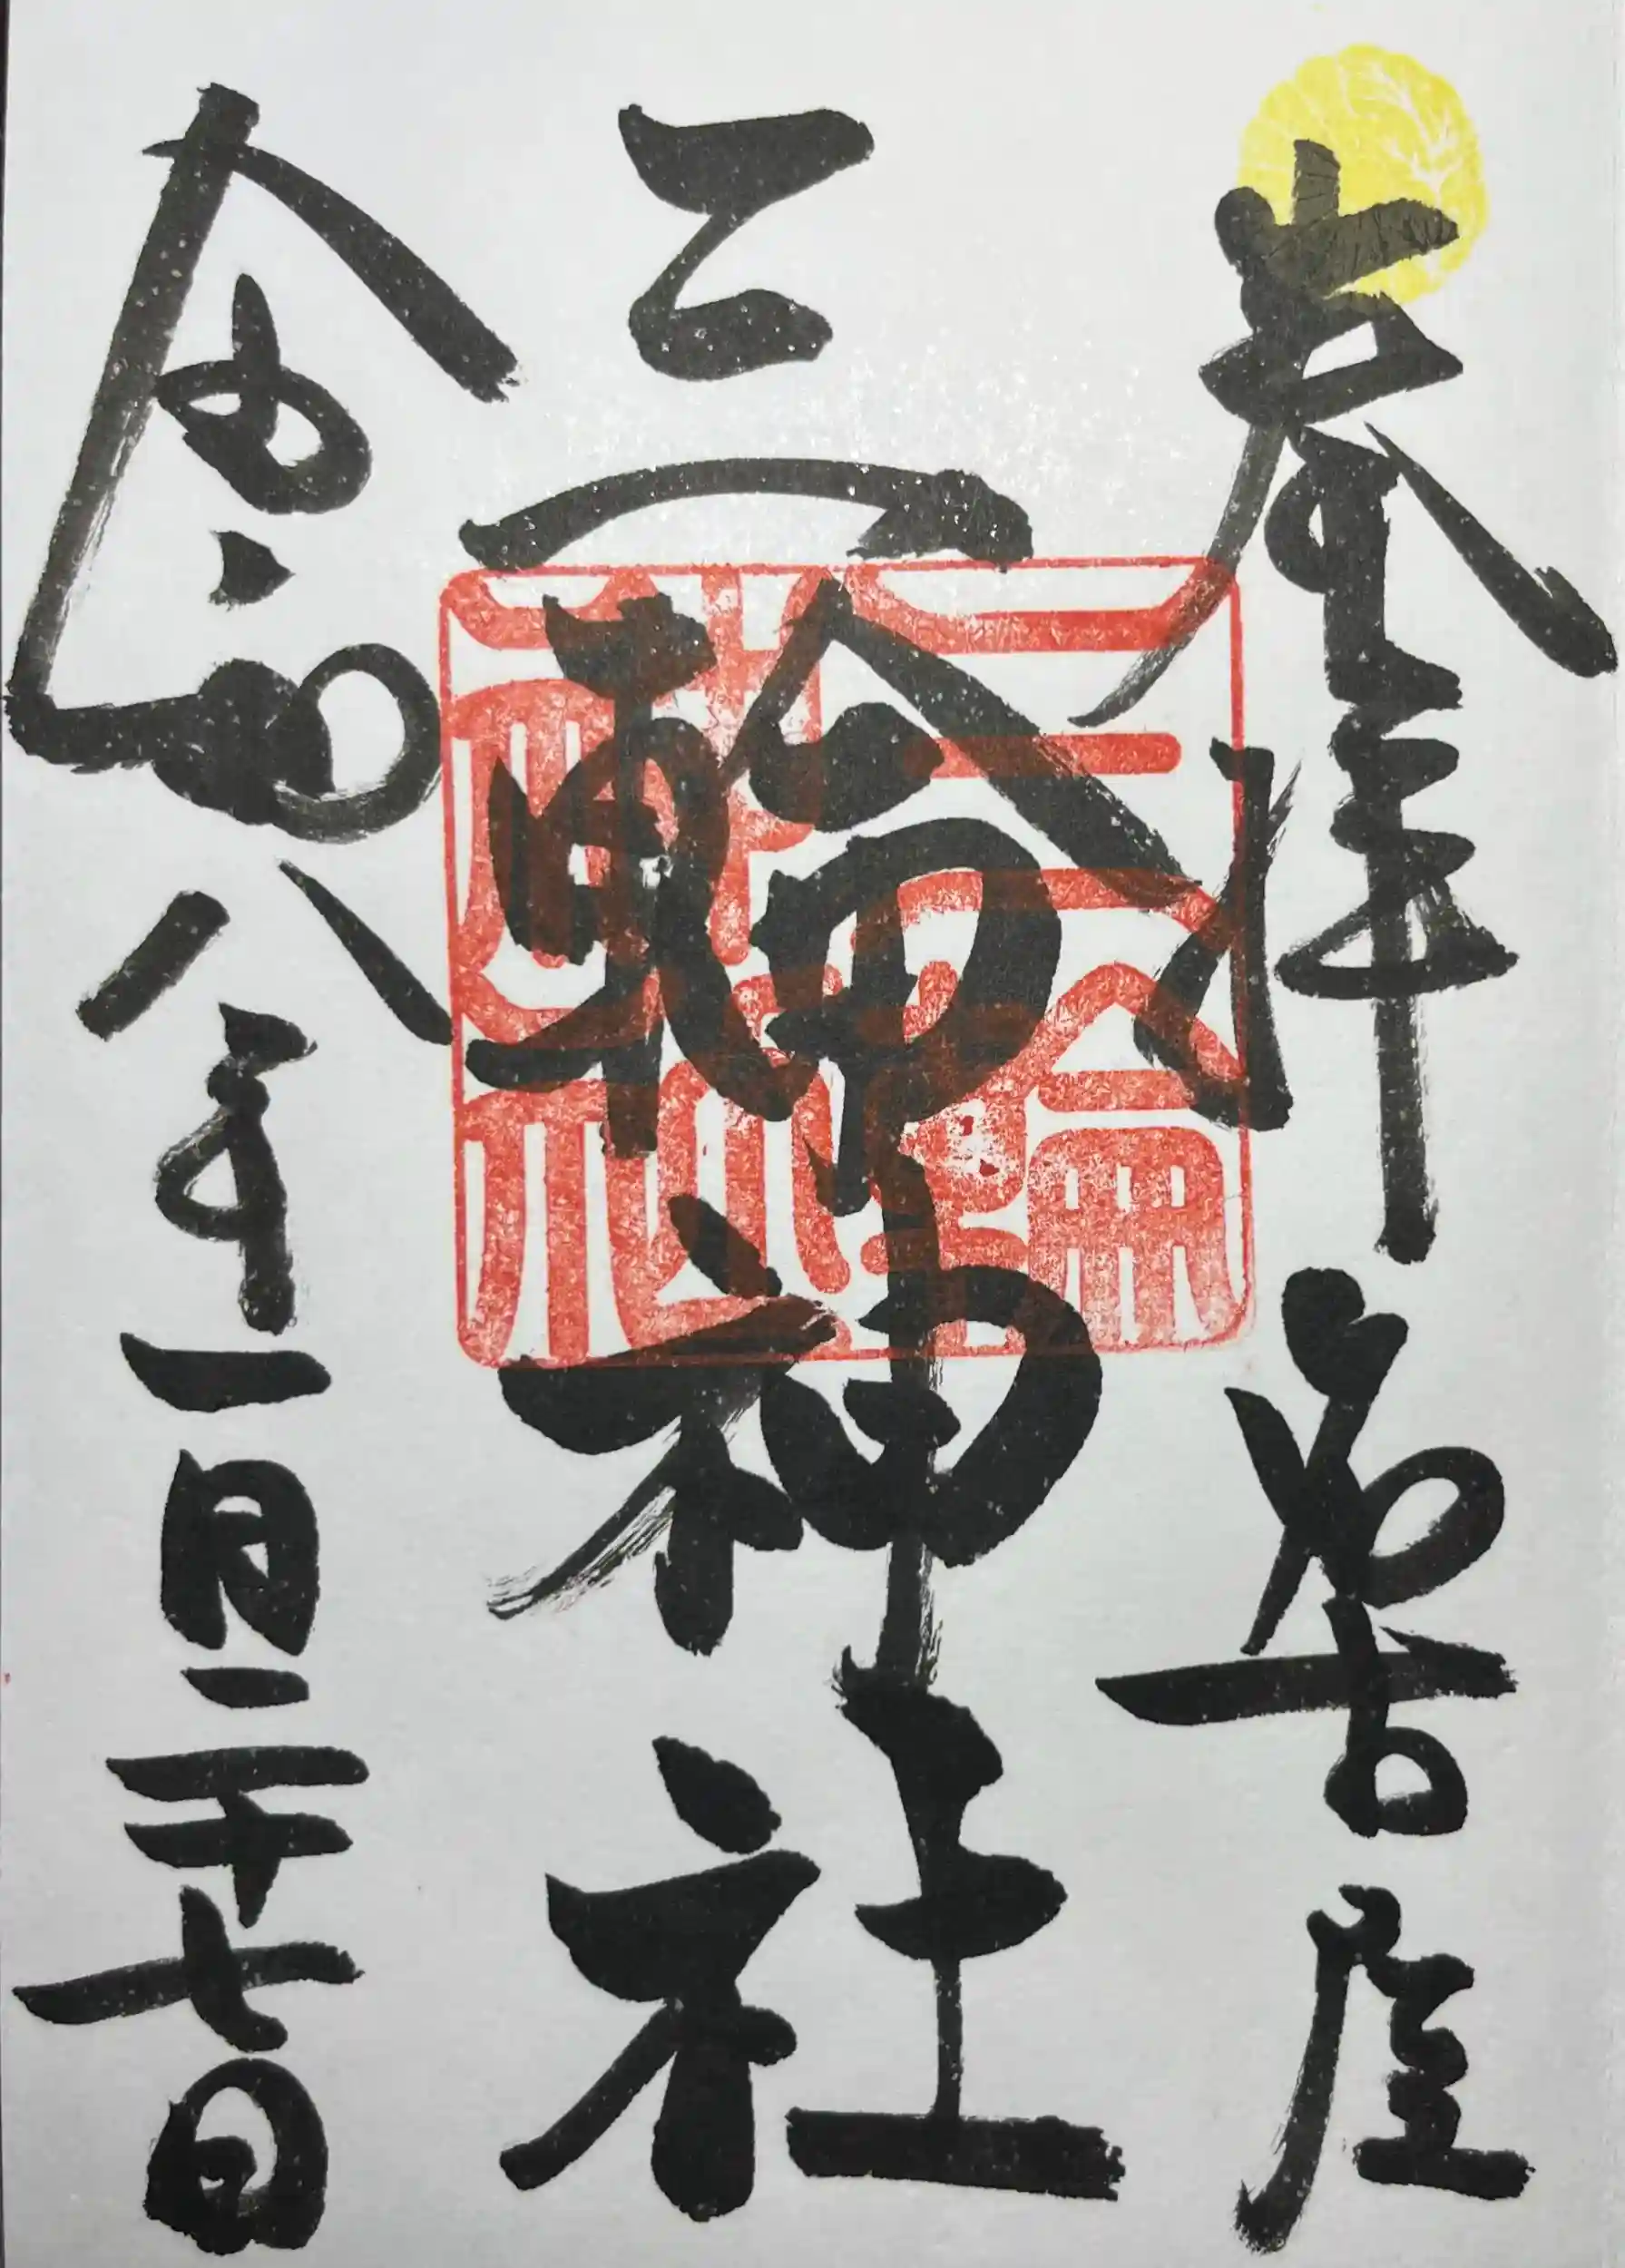 奉拝 名古屋
三輪神社
三輪神社
令和八年一月二十七日